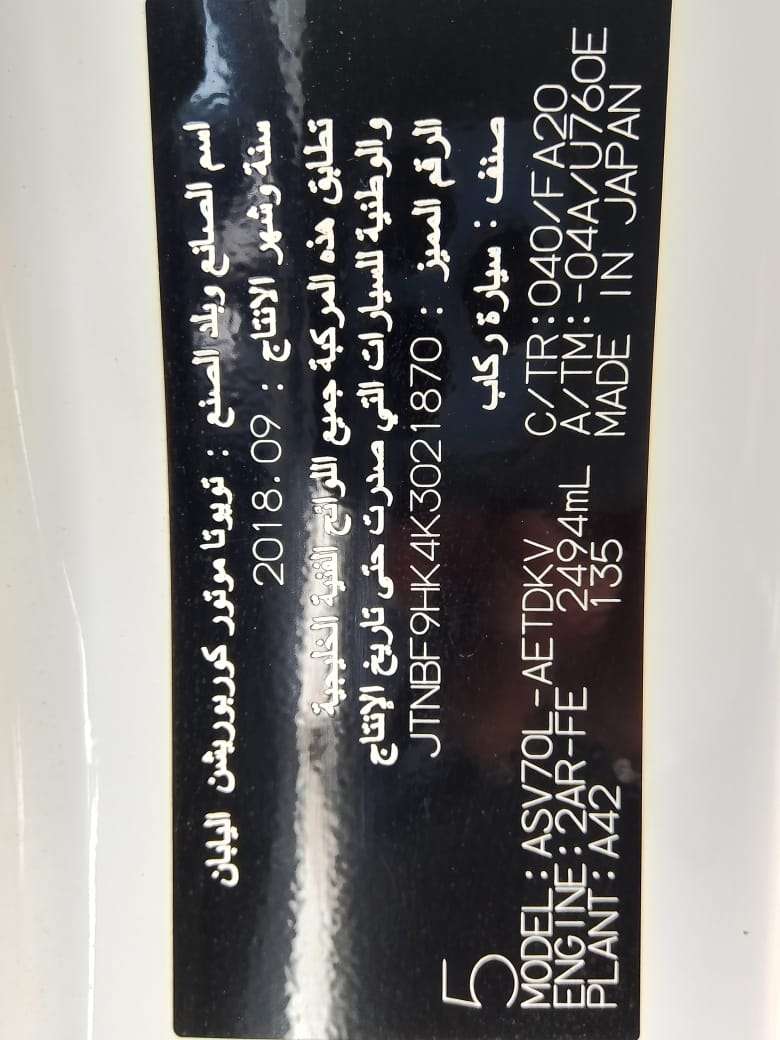 اسم الصانع وبلد الصنع : تويوتا موتور كوربوريشن اليابان
سنة وشهر الانتاج : 2018.09
تطابق هذه المركبة جميع اللوائح الفنية الخليجية
والوطنية للسيارات التي صدرت حتى تاريخ الإنتاج
الرقم المميز : JTNBF9HK4K3021870
صنف : سيارة ركاب
5
MODEL:ASV70L-AETDKV C/TR:040/FA20
ENGINE:2AR-FE 2494mL A/TM:-04A/U760E
PLANT:A42 135 MADE IN JAPAN